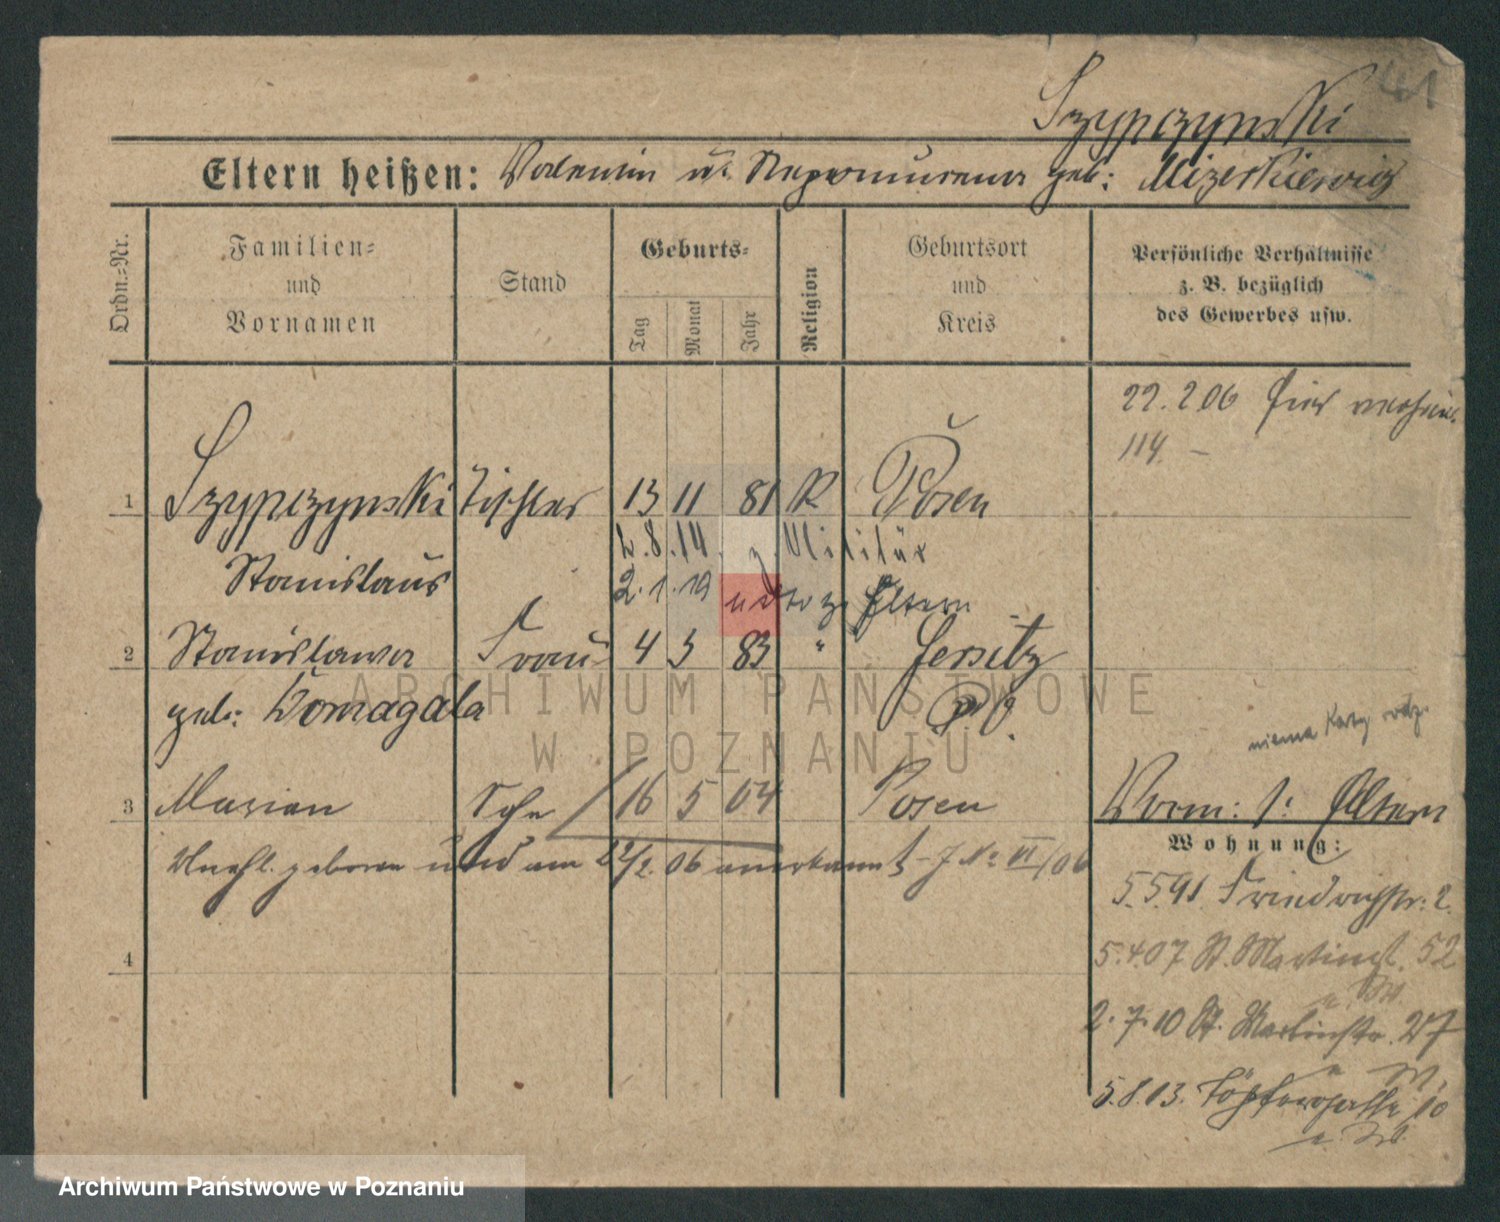 41
Szypczynski
Eltern heißen: Valentin u. Nepomucena geb: Mizerkiewicz
Ordn.=Nr.
Familien=
und
Vornamen
Stand
Geburts=
Tag
Monat
Jahr
Religion
Geburtsort
und
Kreis
Persönliche Verhältnisse
z. B. bezüglich
des Gewerbes usw.
22.2 06 hier
114. –
1 Szypczynski Tischler 13 11 81 K Posen
2.8.14. z. Militär
Stanislaus
2.1.19 zu Eltern
2 Stanislawa Frau 4 3 83 " Jersitz
geb: Domagala P. O.
niema Karty rodz.
3 Marian Sohn 16 5 04 Posen
Vorm: s: Eltern
Unehl. geboren und am 22/2. 06 anerkannt – J No VI/06
Wohnung:
5.5.91 Friedrichstr: 2.
4
5.4.07 St. Martinstr. 52
2.7.10 St. Martinstr. 27
5.8.13. Töpfergasse 10
ARCHIWUM PAŃSTWOWE
W POZNANIU
Archiwum Państwowe w Poznaniu